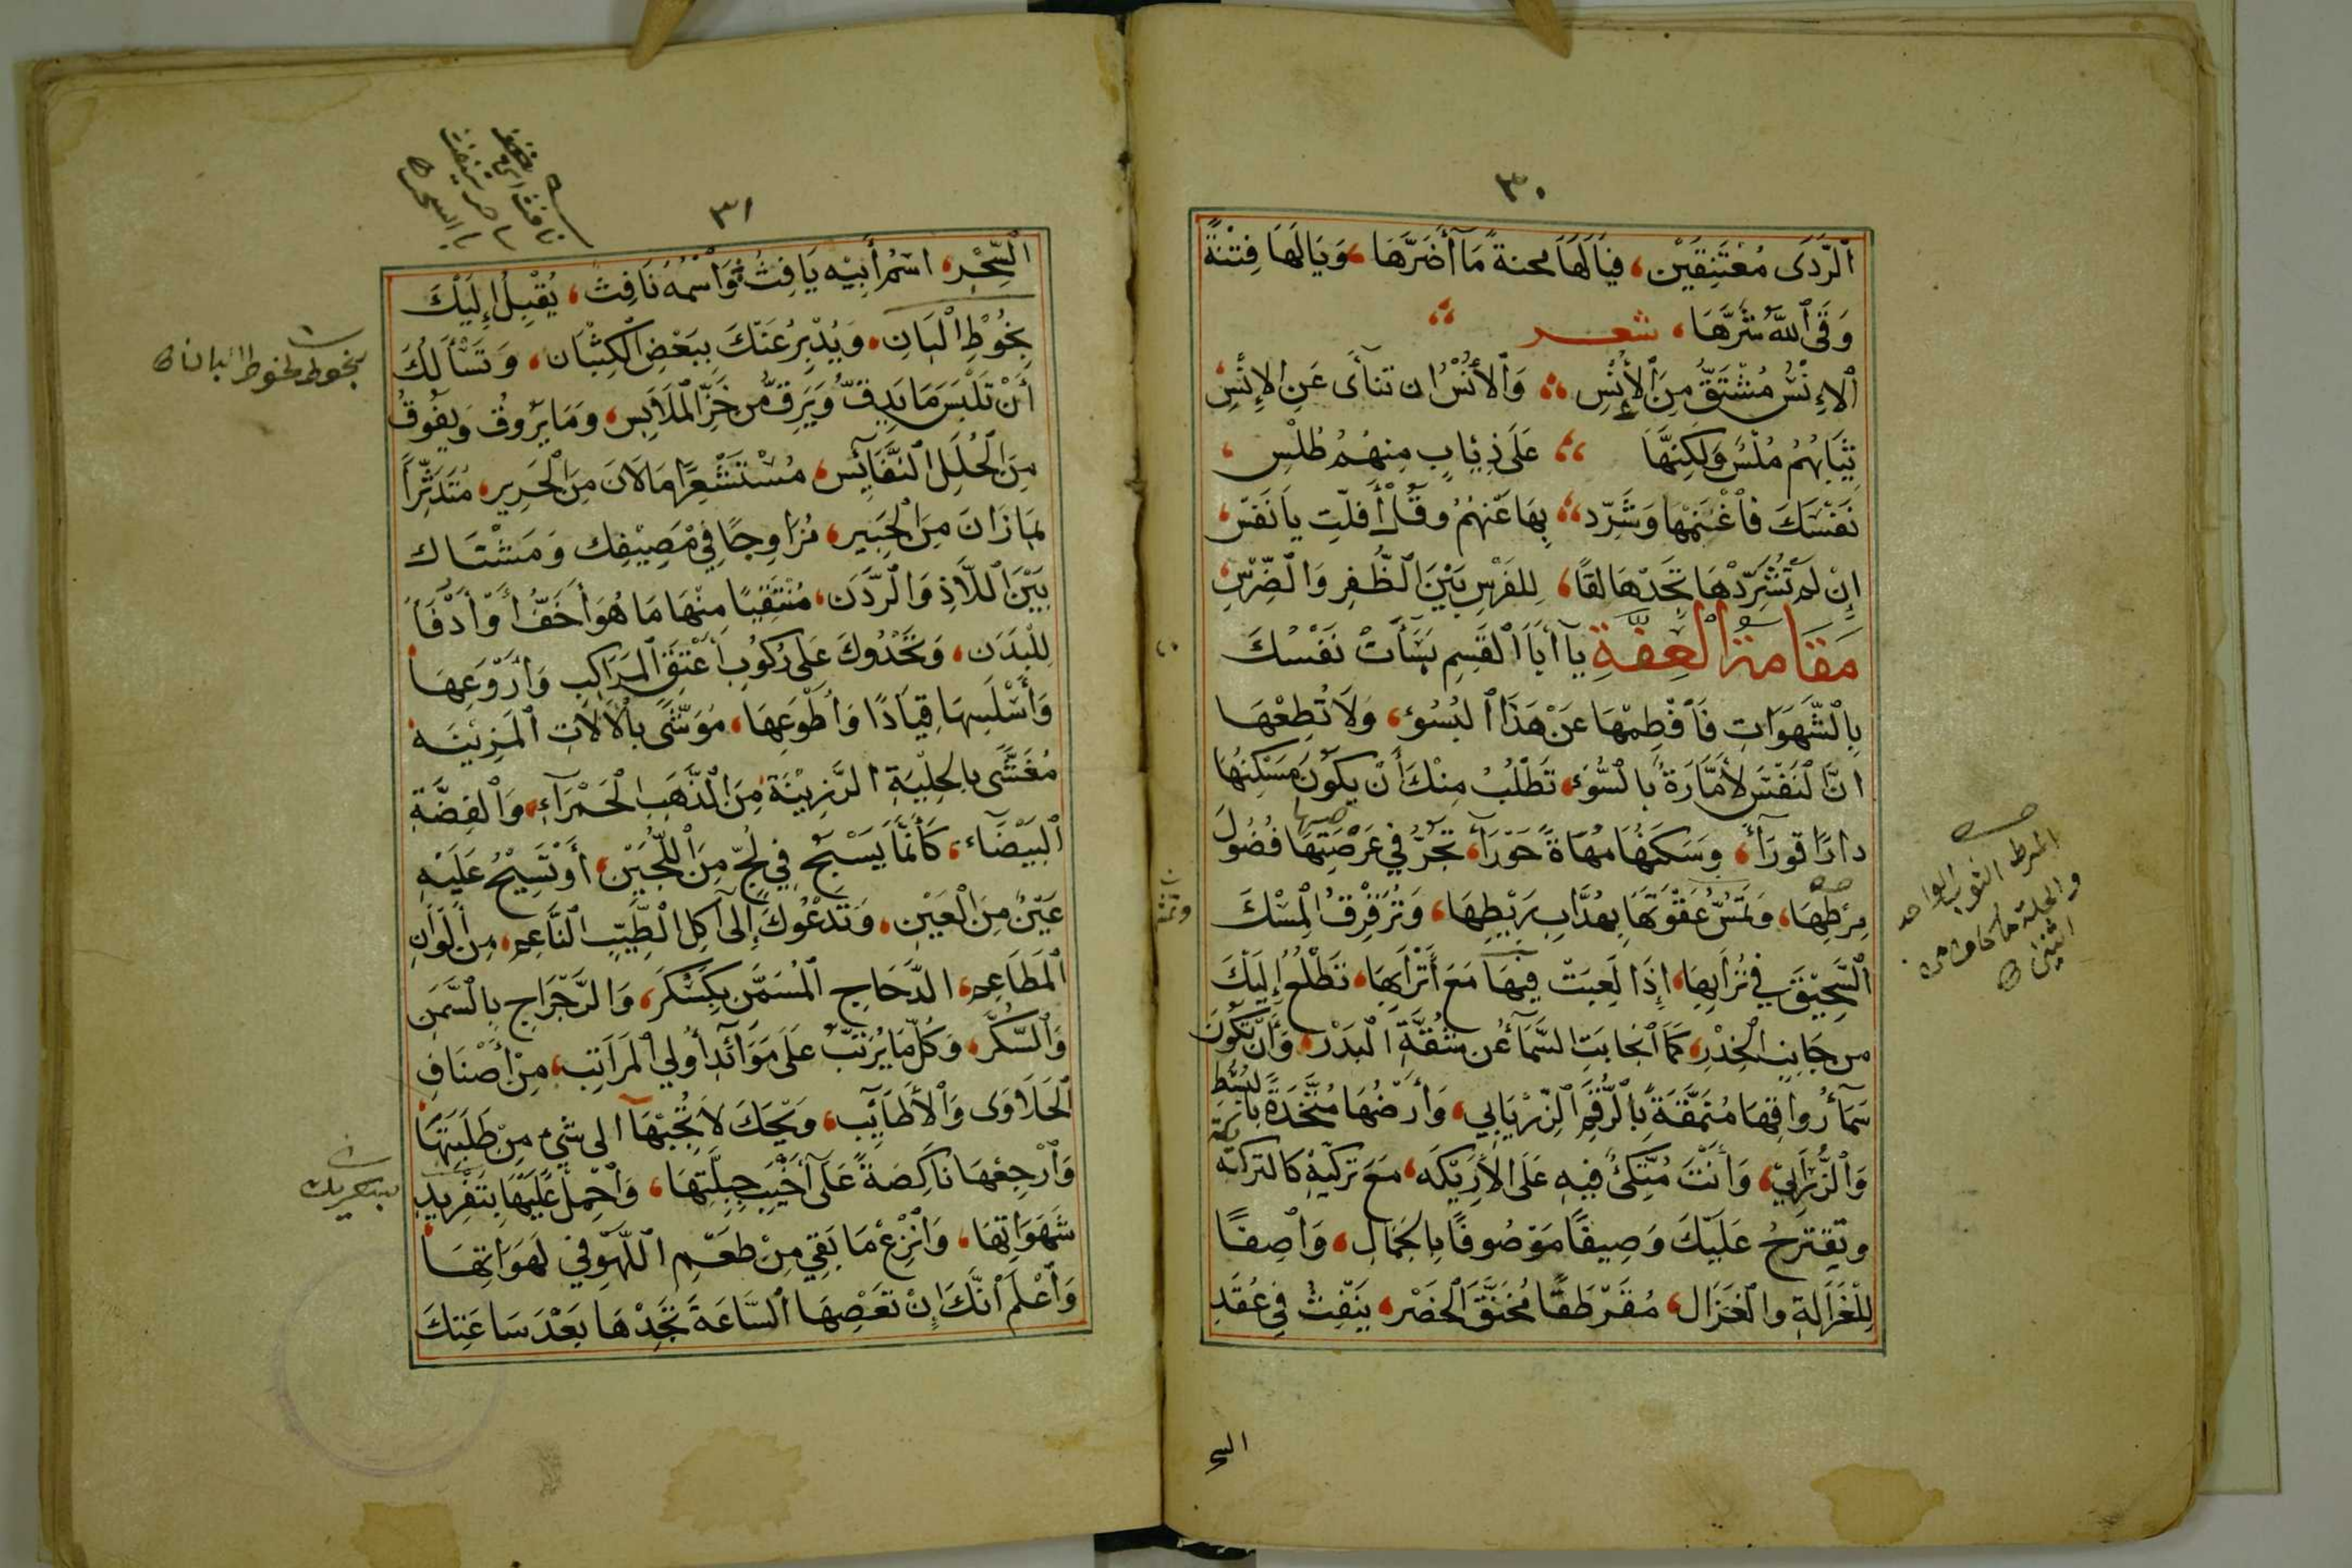 ٣٠
ٱلرَّدَى مُعْتَنِقَيْنِ، فَيَالَهَا محنةً مَآ أَضَرَّهَا، وَيَالَهَا فِتْنَةً
وَقَى ٱللَّهُ شَرَّهَا، شعر
ٱلاِنْسُ مُشْتَقٌّ مِنَ ٱلأُنْسِ وَٱلأُنْسُ ان تنآى عَنِ ٱلإِنْسِ
ثِيَابُهُمْ مُلْسٌ وَلَكِنَّهَا عَلَى ذِئَابٍ مِنهُمُ طُلْسِ
نَفْسَكَ فَٱغْنَمْهَا وَشَرِّد بِهَا عَنْهُمُ وقُلْ أَفلِتِ يا نَفْس
إِنْ لَمْ تُشَرِّدْهَا تَجِدْهَا لقًا، لِلفَرْسِ بَيْنَ ٱلظُّفِر وَالضِّرْسِ
مَقَامَة ٱلْعِفَّةِ يآ أَبَا ٱلقَسِمِ بَسَأَتْ نَفْسُكَ
بِٱلشَّهَوَاتِ فَٱفْطِمْهَا عَنْ هَذَا ٱلبُسُوءِ، وَلاَ تُطِعْهَا
انَّ ٱلنَفْسَ لأَمَّارَةٌ بِالسُّوءِ، تَطْلُبُ مِنْكَ أَنْ يكُونَ مَسْكِنُهَا
دارًا قورَآءَ، وسَكَنُهَا مَهَاةً حَوْرَآءَ، تجُرُّ في عَرْصَتِهَا فُضُولَ
مِرْطِهَا، وَتَمَسُّ عَقْوَتَهَا بِهُدَّابِ رَيْطِهَا، وَتُرَقْرِقُ المِسْكَ
ٱلسَّحِيْقَ فِي تُرَابِهَا، إِذَا لَعِبَتْ فِيْهَا مَعَ أَتْرَابِهَا، تَطْلُعُ إِلَيْكَ
من جَانِبِ ٱلْخِدْرِ، كَمَا ٱنْجَابَتِ السَّمَآءُ عَنْ شُقَّةِ ٱلْبَدْرِ، وَأَنْ تكُونَ
سَمَآءُ رُواقِهَا مُنَمَّقَةً بِٱلرَّقْمِ ٱلزِّرْيَابِي، وَأَرْضُهَا مُنَجَّدَةً بِالْبُسُطِ
وَٱلزَّرَابِيِّ، وَأَنْتَ مُتَّكِئٌ فِيهِ عَلَى الأَرِيْكَه، مَعَ تركيّةٍ كالتركه
وتَقْتَرِحُ عَلَيْكَ وَصِيفًا مَوْصُوفًا بِالجَمَالِ، وَاصِفًا
لِلْغَزَالَةِ والْغَزَال، مُقَرْطَقًا مُخَنَّقَ ٱلْخَصْر، يَنْفِثُ فِي عُقَدِ
السح
المرط الثوب الواحد
٣١
ٱلسِّحْرِ، اسْمُ أَبِيْهِ يَافِثُ، وَاسْمُهُ نَافِثُ، يُقْبِلُ إِلَيْكَ
بِخُوْطِ ٱلْبَانِ، وَيُدْبِرُ عَنْكَ بِبَعْضِ ٱلكِثْبَان، وَتَسْأَلُكَ
أَنْ تَلْبَسَ مَا يَدِقُّ وَيَرِقُّ من خَزِّ ٱلْمَلَابِس، وَمَا يَرُوقُ وَيفُوقُ
مِنَ ٱلْحُلَلِ ٱلنَّفَائِسِ، مُسْتَشْعِرًا مَا لَانَ مِنَ ٱلْحَرِير، مُتَدَثِّرًا
بِمَا زَانَ مِنَ ٱلْحَبِير، مُزَاوِجًا فِي مَصِيْفِك وَمَشْتَاك
بَيْنَ ٱللَّاذِ وَٱلرَّدَن، مُنْتَقِيًا مِنْهَا مَا هُوَ أَخَفُّ أَوْ أَدْفَأ
لِلْبَدَن، وَتَحْدُوكَ عَلَى رُكُوبِ أَعْتَقِ ٱلمَرَاكِبِ وَأَرْوَعِهَا
وَأَسْلَسِهَا قِيَادًا وَأَطْوَعِهَا، مَوَشًّى بِٱلآلَاتِ ٱلمَزِيْنَة
مُغَشًّى بالحِلْيَةِ الرَّزِيْنَة، مِنَ ٱلذَّهَبِ ٱلحَمْرَآءِ، وَٱلْفِضَّةِ
ٱلْبَيْضَآء، كَأَنَّمَا يَسْبَحُ فِي لُجٍّ مِنَ ٱللُّجَيْنِ، أَوْ تَسِيْحُ عَلَيْهِ
عَيْنٌ مِنَ ٱلْعَيْنِ، وَتَدْعُوكَ إِلَى آكِلِ ٱلْطَّيِّبِ ٱلنَّاعِم، مِن أَلْوَانِ
ٱلْمَطَاعِم، الدَّجَاجِ ٱلمُسَمَّنِ بِكَسْكَر، وَالرَّجْرَاجِ بِالسَّمْنِ
وَٱلسُّكَّر، وَكُلِّ مَا يُرَتَّبُ عَلَى مَوَآئِدِ أُولي ٱلمَرَاتِبِ، مِنْ أَصْنَافِ
ٱلْحَلَاوَى وَٱلأَطَايِبِ، وَيْحَكَ لاَ تُجِبْهَآ الى شيءٍ مِنْ طَلِبَتِهَا
وَٱرْجِعْهَا نَاكِصَةً عَلَى آخْيَبِ جِبِلَّتِهَا، وَٱحْمِلْ عَلَيْهَا بِتَفْرِيدِ
شَهَوَاتِهَا، وَٱنْزِعْ مَا بَقِيَ مِنْ طَعْمِ ٱللَّهْوِ فِي لَهَوَاتِهَا
وَٱعْلَم أَنَّكَ إِنْ تَعْصِهَا ٱلسَّاعَةَ تَجِدْهَا بَعْدَ سَاعَتِكَ